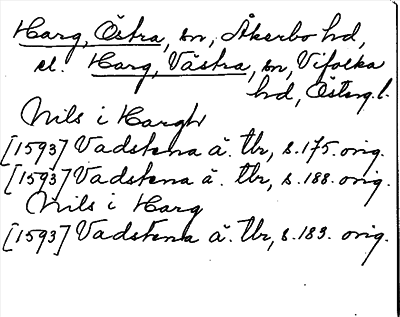 Harg, Östra, sn, Åkerbo hd,
el. Harg, Västra, sn, Vifolka
hd, Österg.l.
Nils i Hargh
[1593] Vadstena ä. tb, s.175. orig.
[1593] Vadstena ä. tb, s.188. orig.
Nils i Harg
[1593] Vadstena ä. tb, s.183. orig.